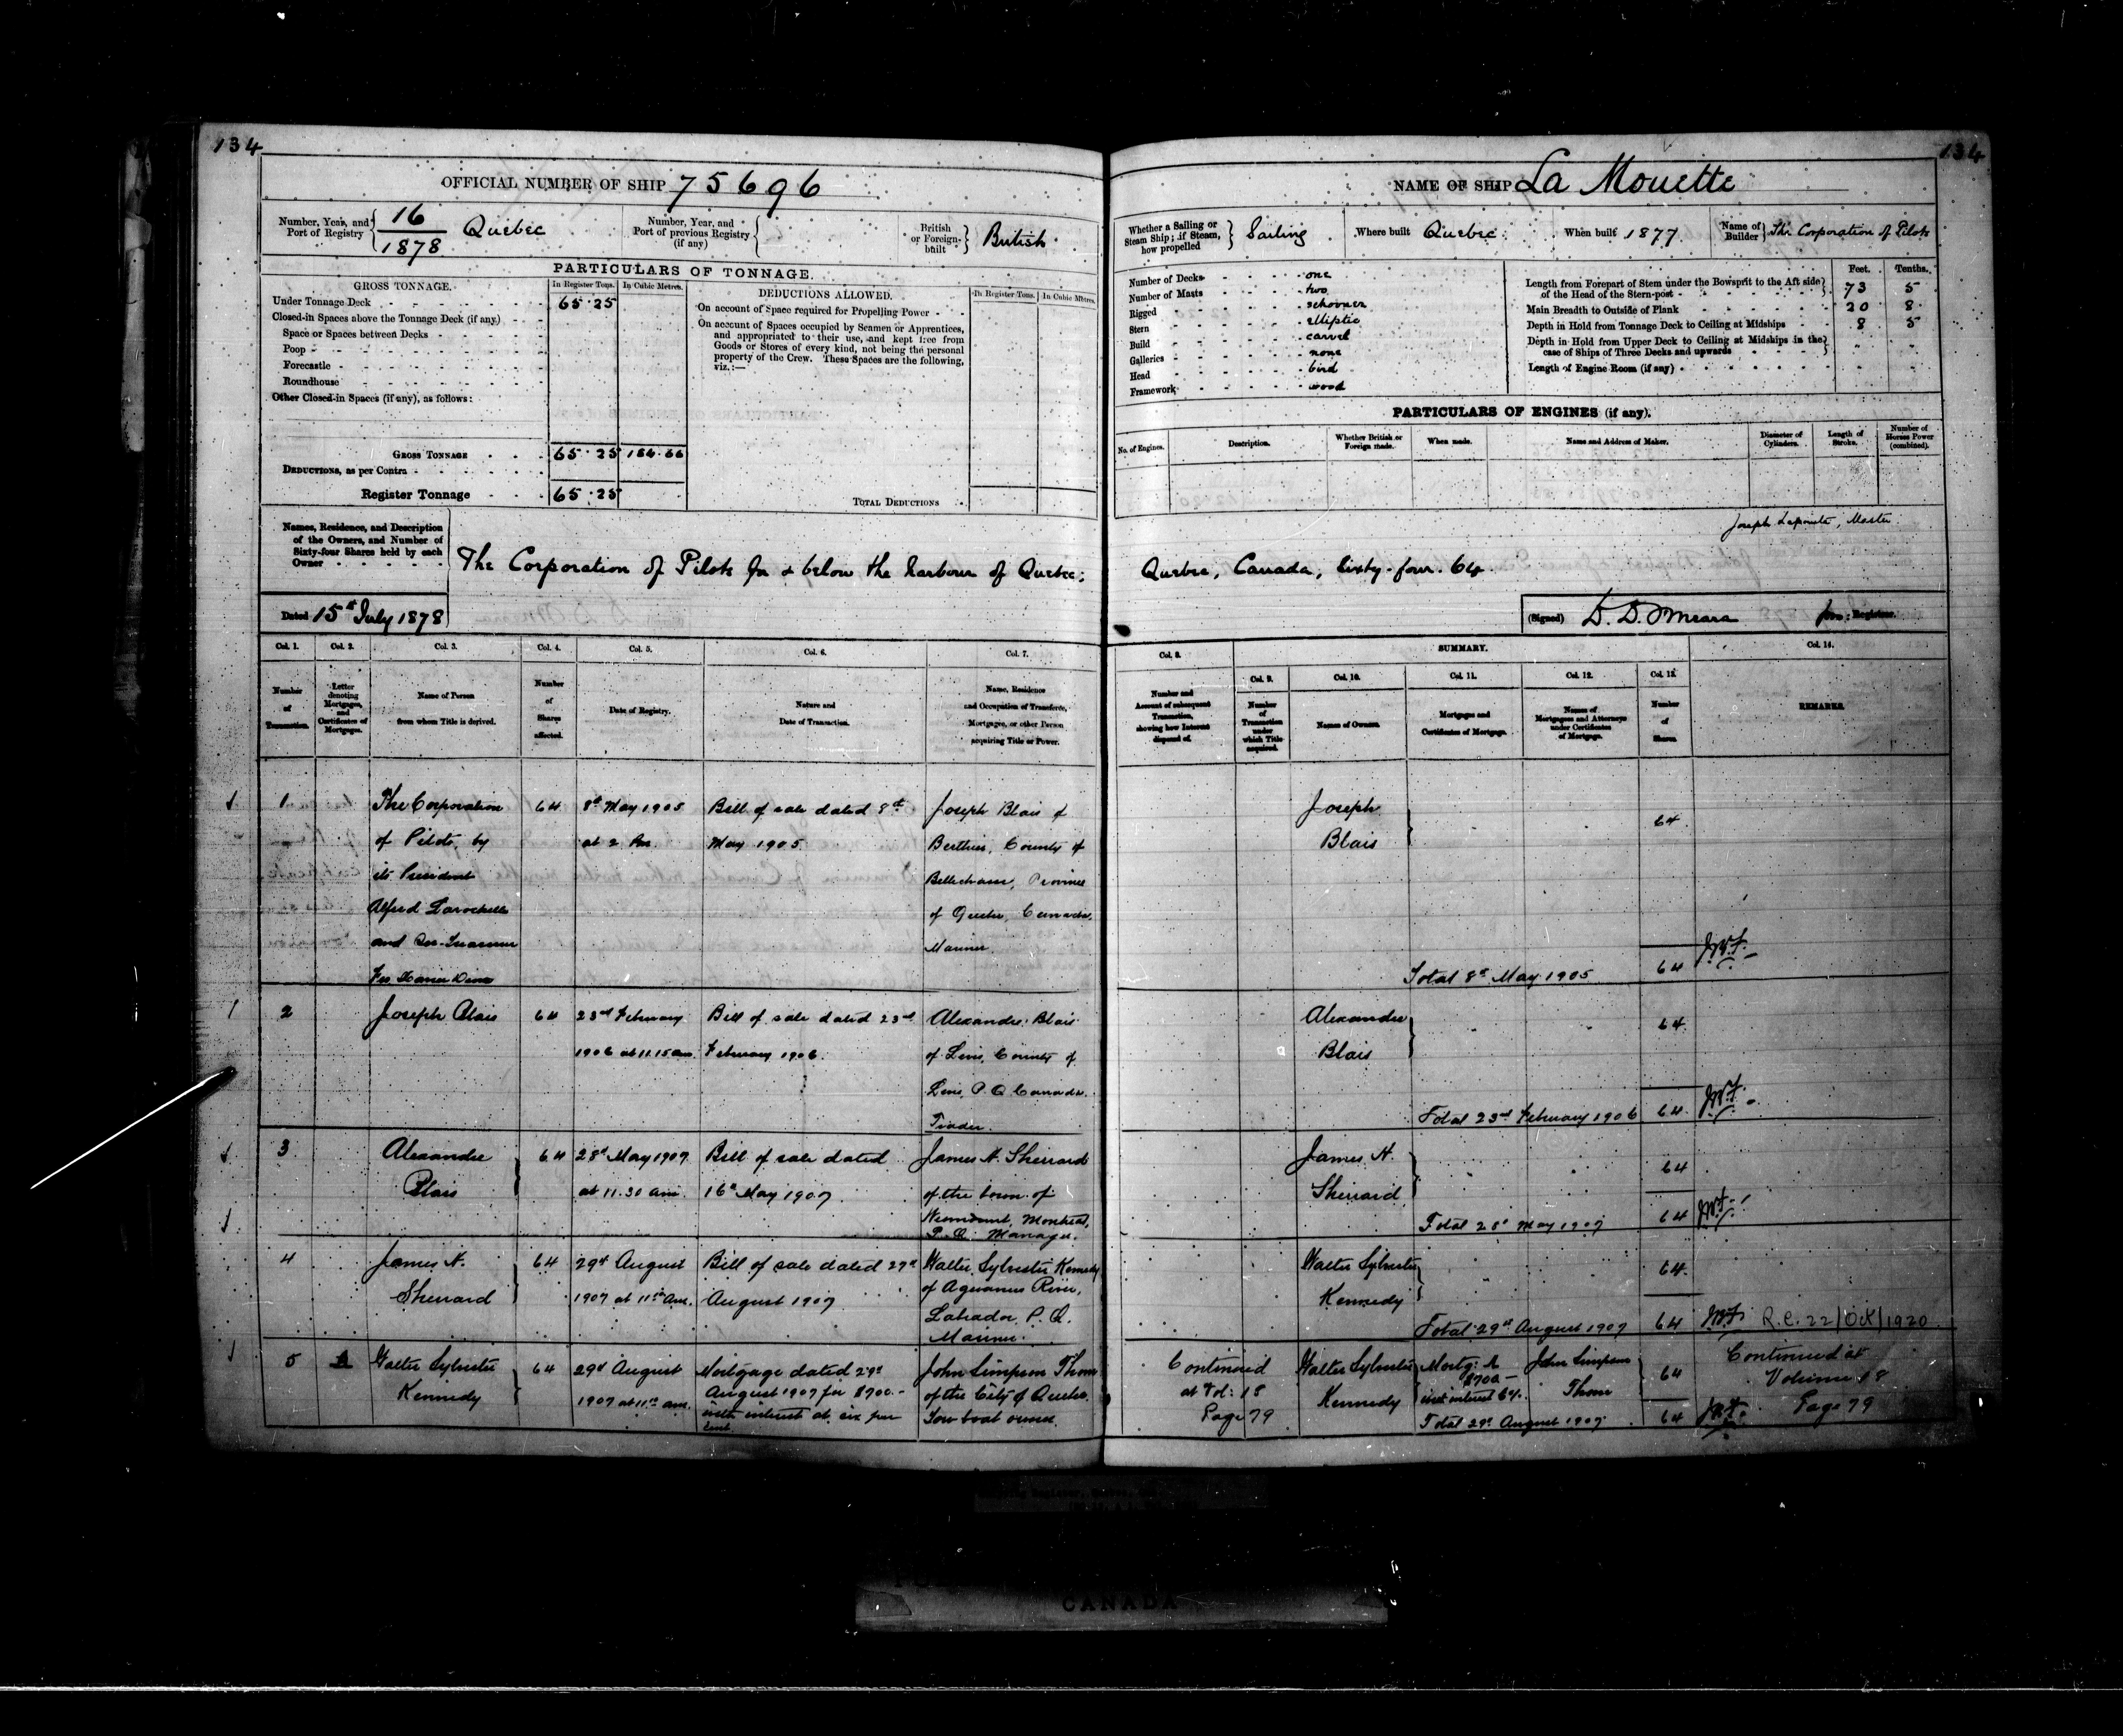 134
OFFICIAL NUMBER OF SHIP 75696
Number, Year, and Port of Registry 16/1878 Quebec
Number, Year, and Port of previous Registry (if any)
British or Foreign built British
PARTICULARS OF TONNAGE.
GROSS TONNAGE. In Register Tons. In Cubic Metres.
Under Tonnage Deck 65.25
Closed-in Spaces above the Tonnage Deck (if any)
Space or Spaces between Decks
Poop
Forecastle
Roundhouse
Other Closed-in Spaces (if any), as follows:
GROSS TONNAGE 65.25 184.66
DEDUCTIONS, as per Contra
Register Tonnage 65.25
DEDUCTIONS ALLOWED. In Register Tons. In Cubic Metres.
On account of Space required for Propelling Power
On account of Spaces occupied by Seamen or Apprentices,
and appropriated to their use, and kept free from
Goods or Stores of every kind, not being the personal
property of the Crew. These Spaces are the following,
viz.:—
TOTAL DEDUCTIONS
Names, Residence, and Description
of the Owners, and Number of
Sixty-four Shares held by each
Owner
The Corporation of Pilots for & below the harbour of Quebec;
Dated 15th July 1878
134
NAME OF SHIP La Mouette
Whether a Sailing or Steam Ship; if Steam, how propelled Sailing
Where built Quebec
When built 1877
Name of Builder The Corporation of Pilots
Number of Decks one
Number of Masts two
Rigged schooner
Stern elliptic
Build carvel
Galleries none
Head bird
Framework wood
Feet. Tenths.
Length from Forepart of Stem under the Bowsprit to the Aft side
of the Head of the Stern-post 73 5
Main Breadth to Outside of Plank 20 8
Depth in Hold from Tonnage Deck to Ceiling at Midships 8 5
Depth in Hold from Upper Deck to Ceiling at Midships in the
case of Ships of Three Decks and upwards
Length of Engine Room (if any)
PARTICULARS OF ENGINES (if any).
No. of Engines. Description. Whether British or Foreign made. When made. Name and Address of Maker. Diameter of Cylinders. Length of Stroke. Number of Horses Power (combined).
Joseph Lapointe, Master
Quebec, Canada, Sixty-four. 64
(Signed) D. D. O'Meara Registrar.
Col. 1. Col. 2. Col. 3. Col. 4. Col. 5. Col. 6. Col. 7.
Number of Transaction.
Letter denoting Mortgages, and Certificates of Mortgage.
Name of Person from whom Title is derived.
Number of Shares affected.
Date of Registry.
Nature and Date of Transaction.
Name, Residence and Occupation of Transferee, Mortgagee, or other Person acquiring Title or Power.
Col. 8. SUMMARY. Col. 14.
Col. 9. Col. 10. Col. 11. Col. 12. Col. 13.
Number and Account of subsequent Transaction, showing how Interest disposed of.
Number of Transaction under which Title acquired.
Names of Owners.
Mortgages and Certificates of Mortgage.
Names of Mortgagees and Attorneys under Certificates of Mortgage.
Number of Shares.
REMARKS.
1 The Corporation 64 8th May 1905 Bill of sale dated 8th Joseph Blais of
of Pilots, by at 2 Pm May 1905 Berthier, County of
its President Bellechasse, Province
Alfred Larochelle of Quebec, Canada,
and Mariner
Joseph
Blais 64
Total 8th May 1905 64
2 Joseph Blais 64 23rd February Bill of sale dated 23rd Alexandre Blais
1906 at 11.15 am February 1906. of Levis, County of
Levis P.Q Canada.
Trader.
Alexandre
Blais 64
Total 23rd February 1906 64
3 Alexandre 64 28th May 1907 Bill of sale dated James H. Sherrard
Blais at 11.30 am. 16th May 1907 of the town of
Montreal,
P.Q. Manager.
James H.
Sherrard 64
Total 28th May 1907 64
4 James H. 64 29th August Bill of sale dated 27th Walter Sylvester Kennedy
Sherrard 1907 at 11 am. August 1907 of Aguanus River,
Labrador P.Q.
Mariner.
Walter Sylvester
Kennedy 64
Total 29th August 1907 64 R.C. 22/Oct/1920
5 A Walter Sylvester 64 29th August Mortgage dated 29th John Simpson Thom
Kennedy 1907 at 11 am. August 1907 for $700.- of the City of Quebec
with interest at six per Tow boat owner.
cent.
Continued Walter Sylvester Mortg: A John Simpson 64 Continued at
at Vol: 18 Kennedy $700 – Thom Volume 18
Page 79 interest 6%. Page 79
Total 29th August 1907 64
CANADA